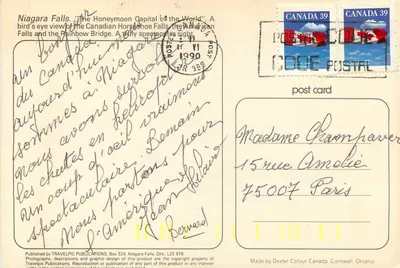 Niagara Falls. "The Honeymoon Capital of the World". A
bird's eye view of the Canadian Horseshoe Falls, the American
Falls and the Rainbow Bridge. A truly spectacular sight.
CANADA 39
CANADA 39
1990
POSTAL CODE
CODE POSTAL
post card
un bonjour
du Canada
aujourd'hui nous
sommes à Niagara
nous avons survolé
les chutes en hélicoptère
un coup d'oeil vraiment
spectaculaire. Demain
Nous partons pour
l'Amérique
Jean
Madame Champaver
15 rue Amélie
75007 Paris
Published by TRAVELPIC PUBLICATIONS, Box 324, Niagara Falls, Ont., L2E 6T8
Photography, descriptions and graphic design of this product are the copyright property of
Travelpic Publications. Reproduction of any part of this product in any manner
Made by Dexter Colour Canada, Cornwall, Ontario